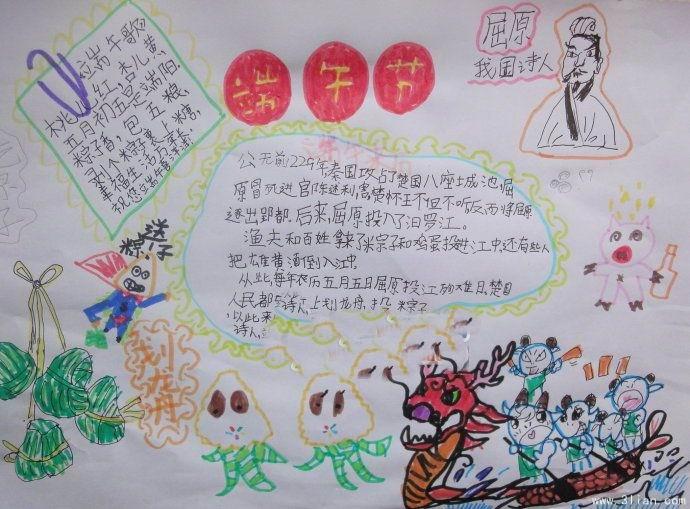 端午节
端午歌
桃儿红，杏儿黄，
五月初五是端阳。
粽子香，包五粮，
剥个粽子裹上糖，
幸福生活
祝您端午
屈原
我国诗人
公元前229年秦国攻占了楚国八座城池
遂出郢都。后来，屈原投入了汨罗江。
渔夫和百姓拿了米粽子和鸡蛋投进江中，还有些人
把雄黄酒倒入江中。
从此，每年农历五月五日屈原投江殉难日，楚国
人民都 江上划龙舟，投 粽子
以此来
诗人。
送
粽子
划龙舟
www.3lian.com